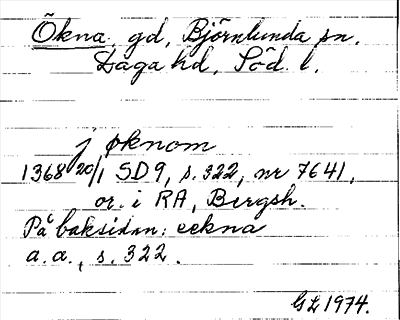 Ökna, gd, Björnlunda sn.
Daga hd, Söd. l.
j øknom
1368 20/1 SD9, s. 322, nr 7641,
or. i RA, Bergsh.
På baksidan: eekna
a.a., s. 322.
GL 1974.